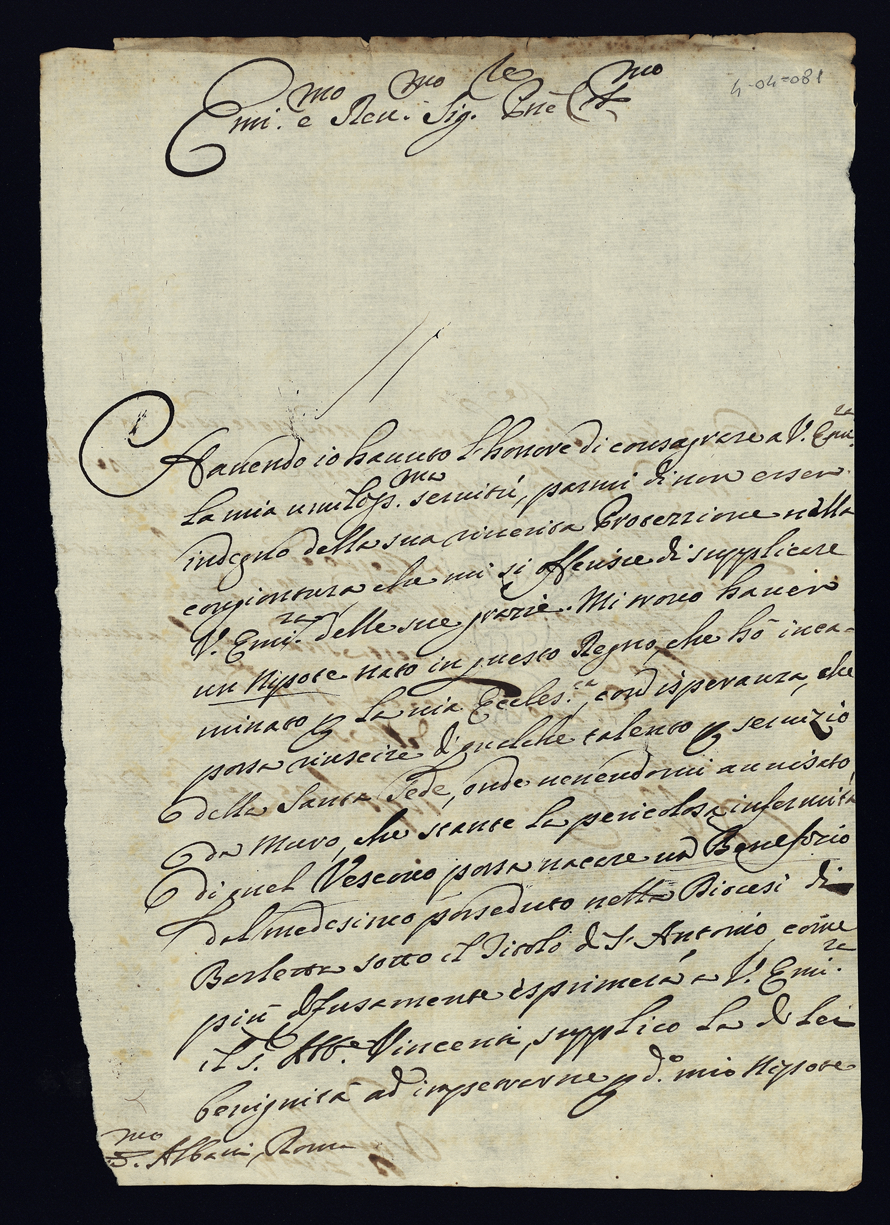 4-04-081
Emi.mo e Reu.mo Sig.re Pne
Hauendo io hauuto l'honore di consagrare a V. Emi.za
la mia umiliss.ma seruitù, parmi di non esser
indegno della sua riuerita Protezzione nella
congiontura che mi si offerisce di supplicare
V. Emi.za delle sue grazie. Mi trouo hauer
un Nipote nato in questo Regno, che hò inca-
minato p la uia Eccles.ca, con isperanza, che
possa riuscire di qualche talento p seruizio
della Santa Sede, onde uenendomi auuisato
da Muro, che stante la pericolosa infermità
di quel Vescouo possa uacare un Beneficio
dal medesimo posseduto nella Diocesi di
Barletta sotto il Titolo di S. Antonio, come
più diffusamente esprimerà a V. Emi.za
il S.r Abb.e Vincenti, supplico la di lei
benignità ad impetrarne p d.o mio Nipote
S. Albani, Roma